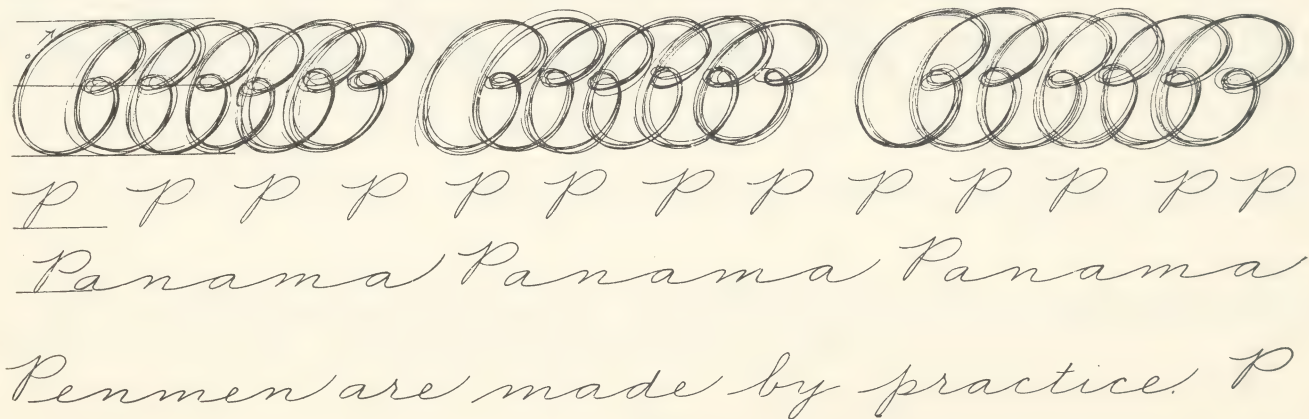 P P P P P P P P P P P P P
Panama Panama Panama
Penmen are made by practice. P